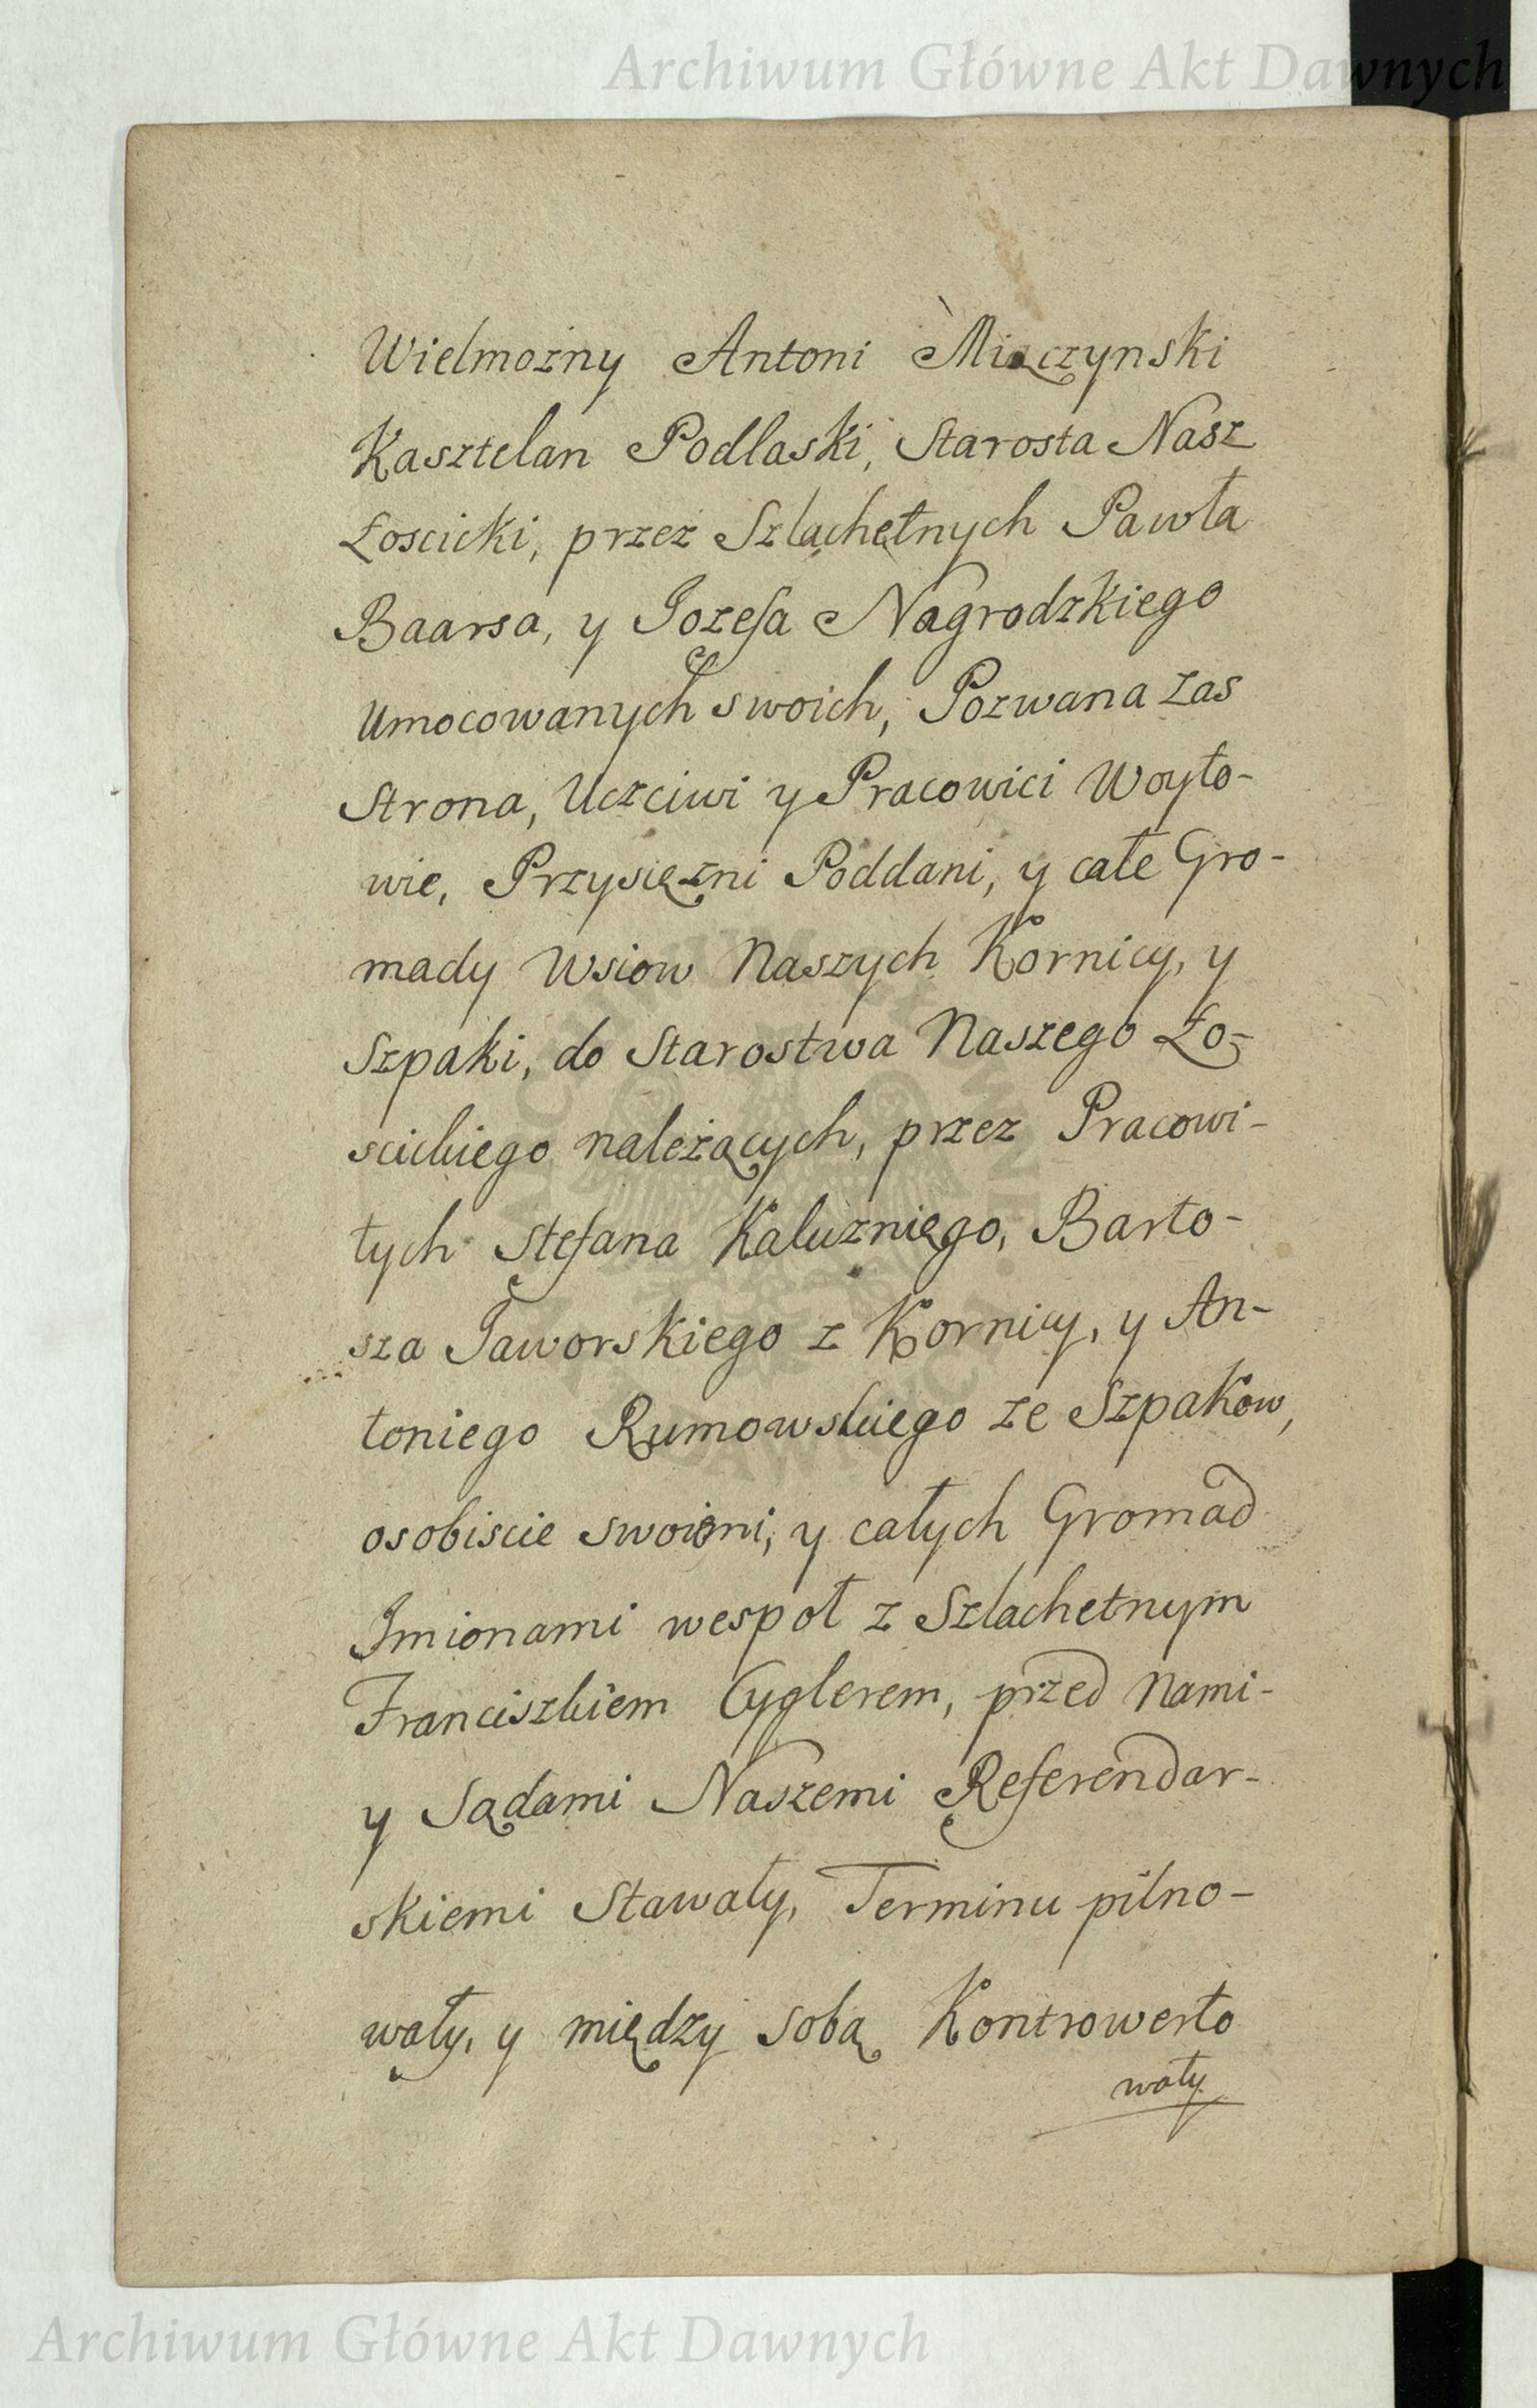 Archiwum Główne Akt Dawnych
Wielmozny Antoni Miączynski
Kasztelan Podlaski, Starosta Nasz
Łoscicki, przez Szlachetnych Pawła
Baarsa, y Jozefa Nagrodzkiego
Umocowanych swoich, Pozwana zas
Strona, Uczciwi y Pracowici Woyto-
wie, Przysięzni Poddani, y całe Gro-
mady Wsiow Naszych Kornicy, y
Szpaki, do Starostwa Naszego Ło-
scickiego należących, przez Pracowi-
tych Stefana Kaluzniego, Barto-
sza Jaworskiego z Kornicy, y An-
toniego Rumowskiego ze Szpakow,
osobiscie swoiemi, y całych Gromad
Imionami wespoł z Szlachetnym
Franciszkiem Cyglerem, przed Nami-
y Sądami Naszemi Referendar-
skiemi Stawały, Terminu pilno-
wały, y między sobą Kontrowerto
wały
Archiwum Główne Akt Dawnych